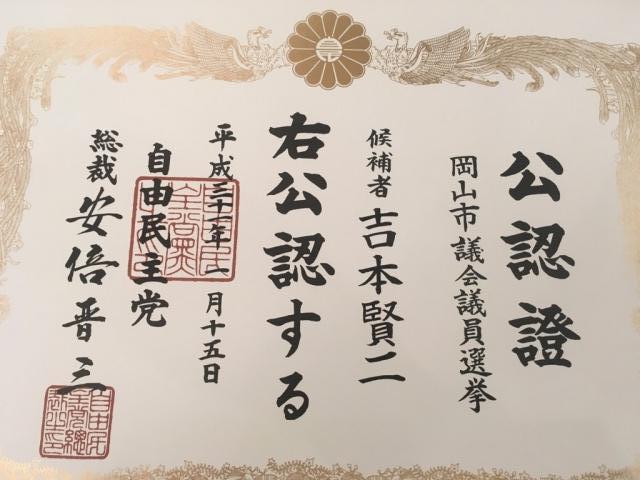 公認證
岡山市議会議員選挙
候補者 吉本賢二
右公認する
平成三十一年一月十五日
自由民主党
総裁 安倍晋三